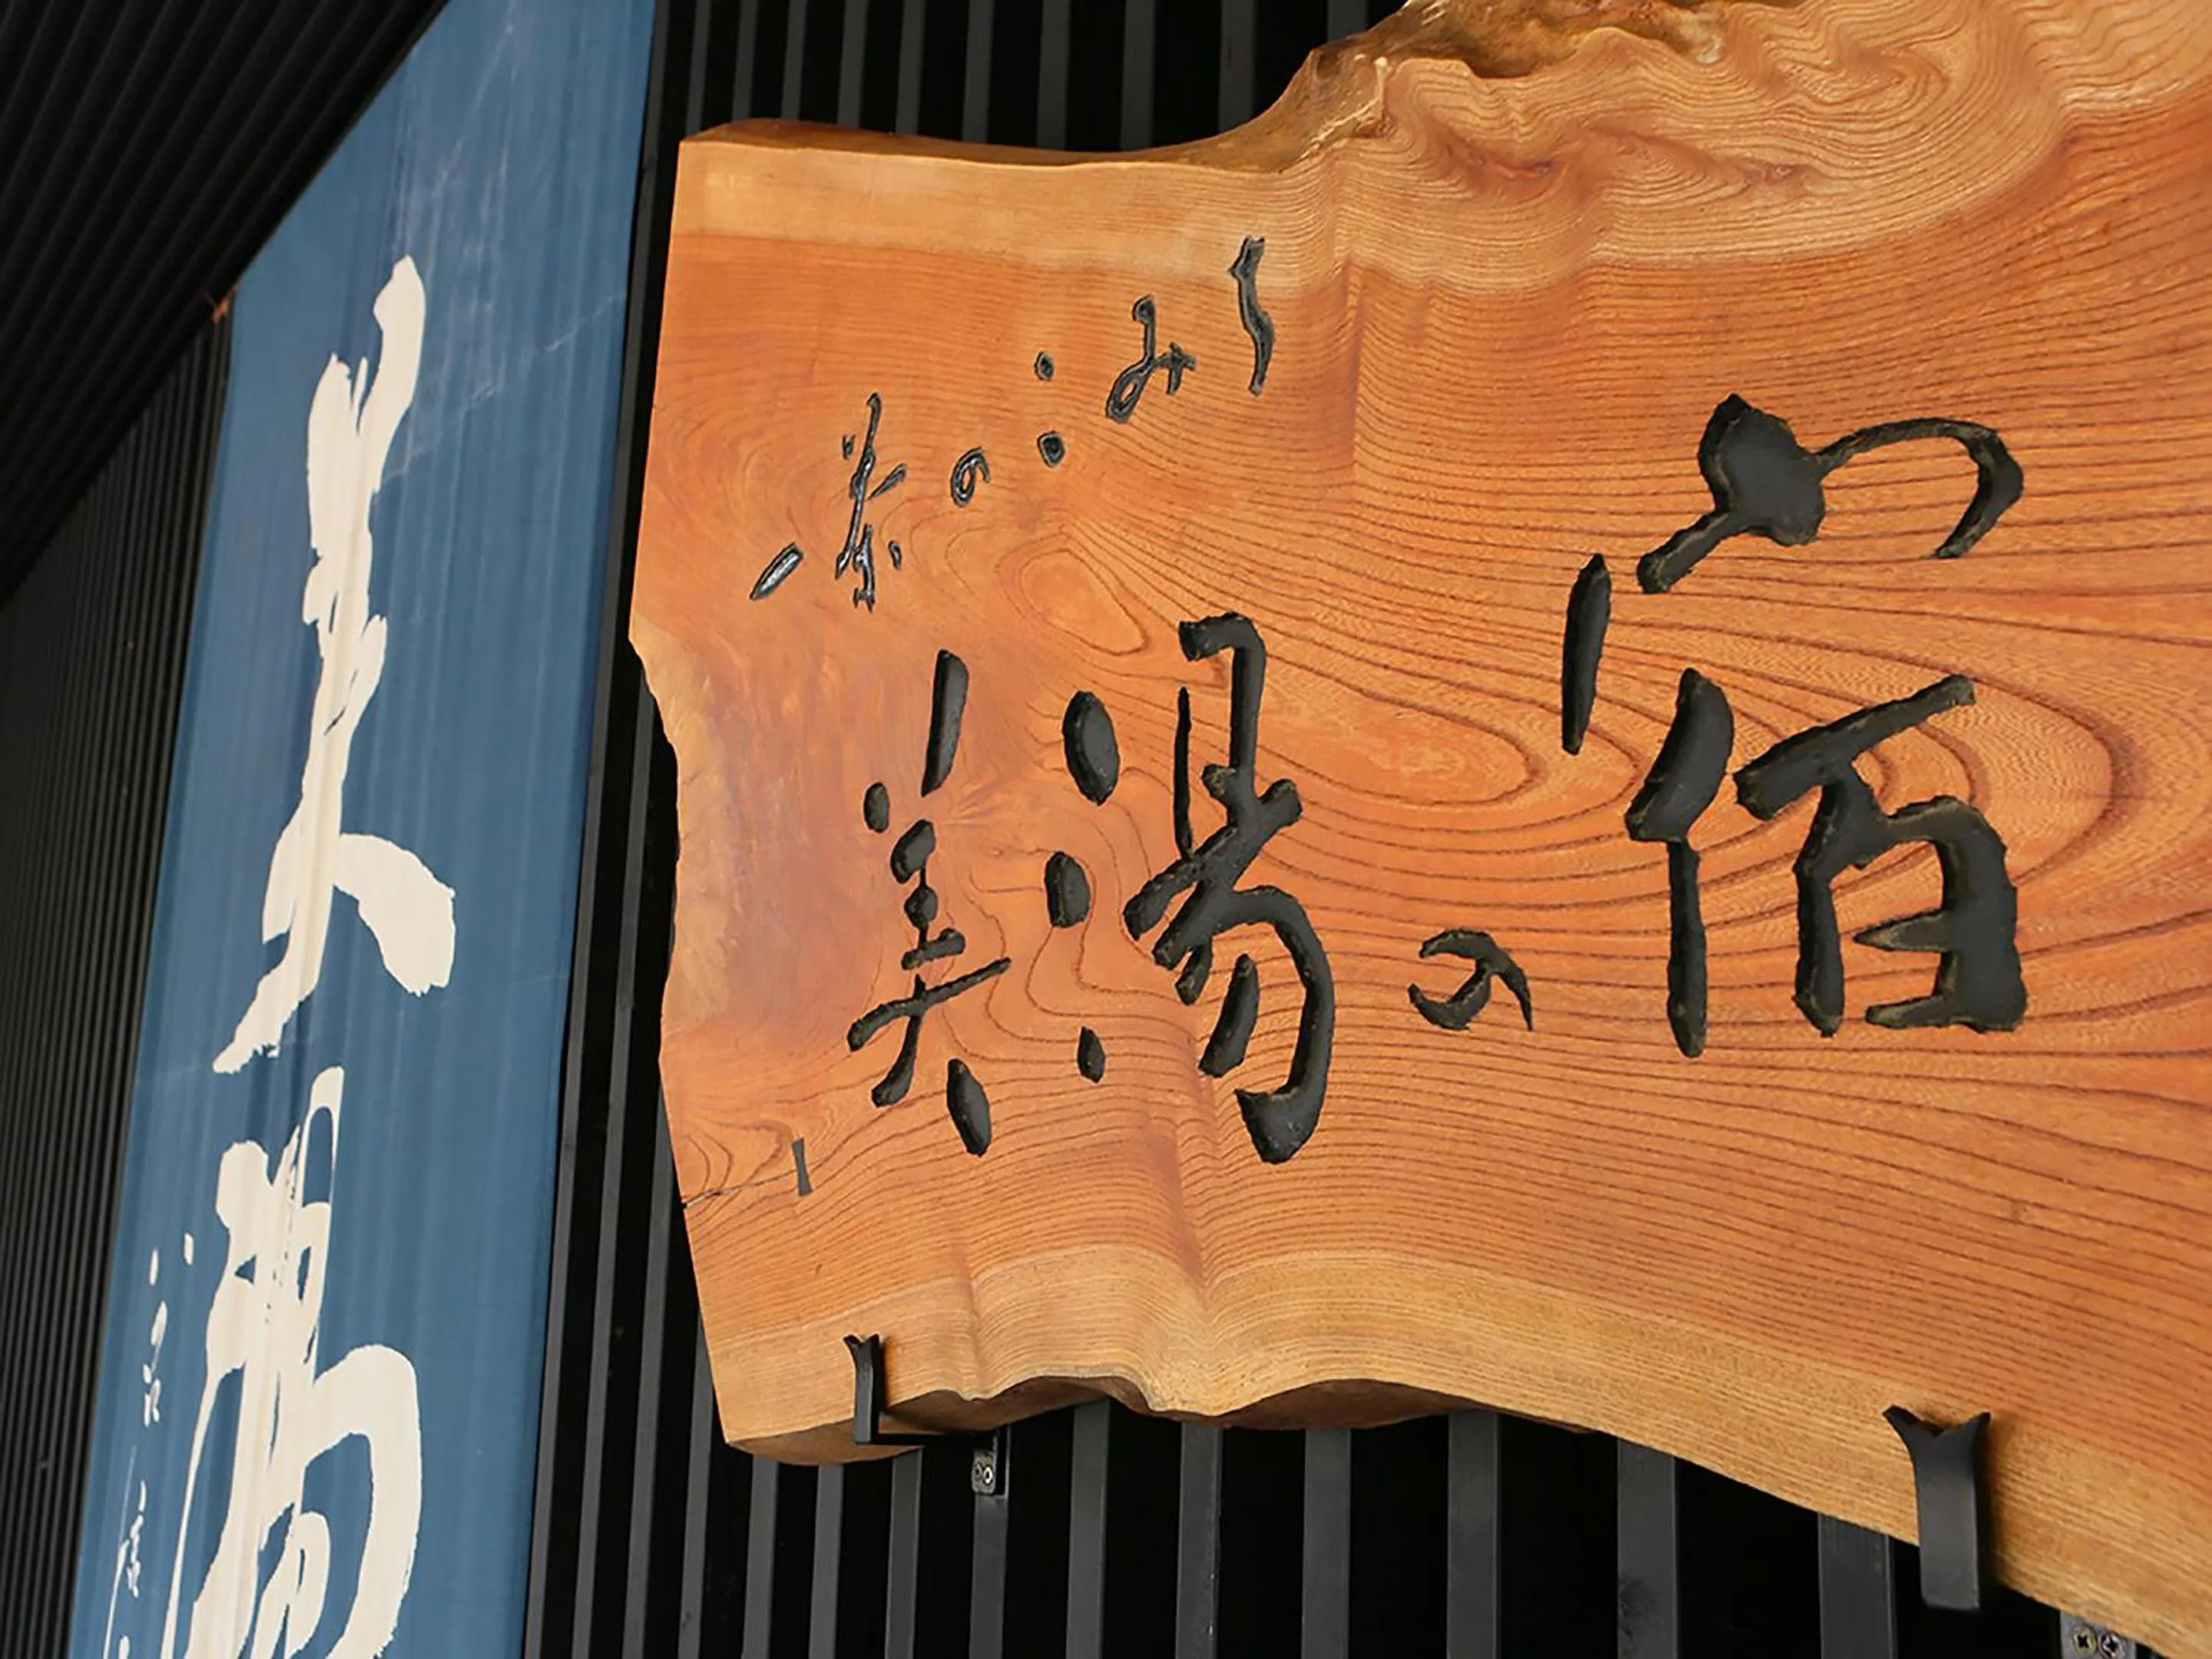 一茶のこみち
美湯の宿
美湯